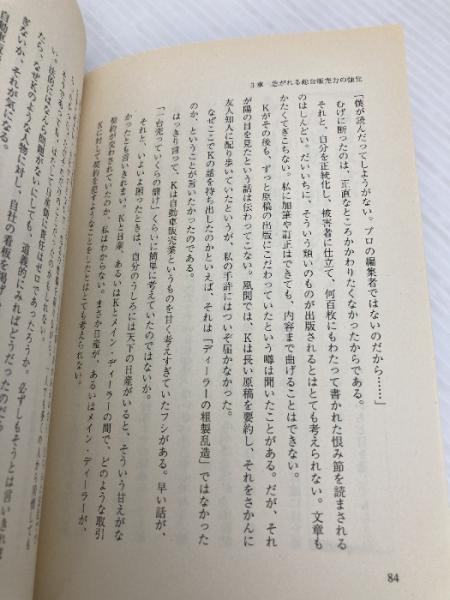 3章 急がれる総合販売力の強化
「僕が読んだってしようがない。プロの編集者ではないのだから……」
むげに断ったのは、正直なところかかわりたくなかったからである。
それと、自分を正統化し、被害者に仕立て、何百枚にもわたって書かれた恨み節を読まされる
のはしんどい。だいいちに、そういう類いのものが出版されるとはとても考えられない。文章も
かたくてぎこちない。私に加筆や訂正はできても、内容まで曲げることはできない。
Kがその後も、ずっと原稿の出版にこだわっていたという噂は聞いたことがある。だが、それ
が陽の目を見たという話は伝わってこない。風聞では、Kは長い原稿を要約し、それをさかんに
友人知人に配り歩いていたというが、私の手許にはついぞ届かなかった。
なぜここでKの話を持ち出したのかといえば、それは「ディーラーの粗製乱造」ではなかった
のか、ということが言いたかったのである。
はっきり言って、Kは自動車販売業というものを甘く考えすぎていたフシがある。早い話が、
「一台売っていくらの儲け」くらいに簡単に考えていたのではないか。
それと、いよいよ困ったときは、自分のうしろには天下の日産がいると、そういう甘えがな
かったとも言いきれまい。Kと日産、あるいはKとメイン・ディーラーの間で、どのような取引
契約が交わされていたのか、私はわからない。まさか日産が、あるいはメイン・ディーラーが、
Kに対して契約を犯すようなことをしたとはとても考えられない。
たら、なぜKのような人物に対し、自社の看板を
ぎないか、それが気になる。
84